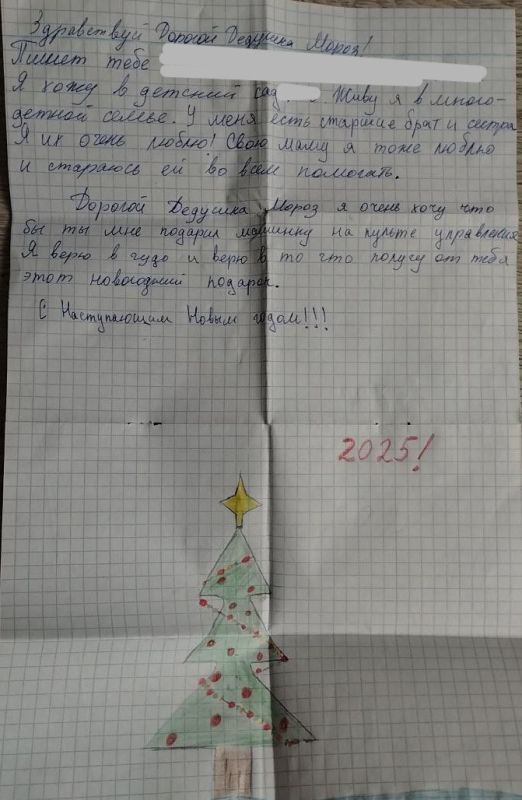 Здравствуй Дорогой Дедушка Мороз!
Пишет тебе
Я хожу в детский сад. Живу я в много-
детной семье. У меня есть старшие брат и сестра
Я их очень люблю! Свою маму я тоже люблю
и стараюсь ей во всем помогать.
Дорогой Дедушка Мороз я очень хочу что
бы ты мне подарил машинку на пульте управления
Я верю в чудо и верю в то что получу от тебя
этот новогодний подарок.
С Наступающим Новым годом!!!
2025!